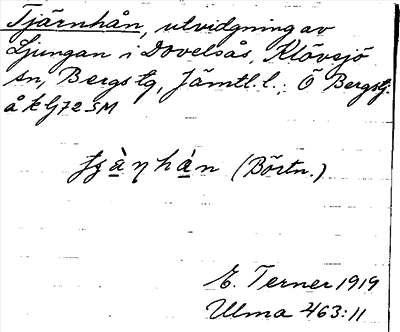 Tjärnhån, utvidgning av
Ljungan i Dovelsås, Klövsjö
sn, Bergs tg, Jämtl. l.; Ö Bergstj.
å k bj 72 SM
(Börtn.)
E. Terner 1919
Ulma 463:11